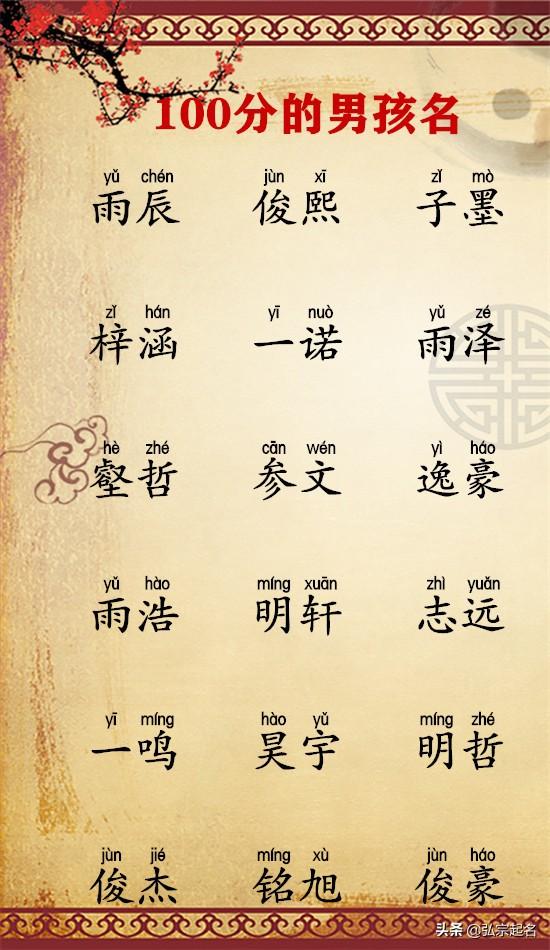 100分的男孩名
yǔ chén jùn xī zǐ mò
雨辰 俊熙 子墨
zǐ hán yī nuò yǔ zé
梓涵 一诺 雨泽
hè zhé cān wén yì háo
壑哲 参文 逸豪
yǔ hào míng xuān zhì yuǎn
雨浩 明轩 志远
yī míng hào yǔ míng zhé
一鸣 昊宇 明哲
jùn jié míng xù jùn háo
俊杰 铭旭 俊豪
头条 @弘宗起名